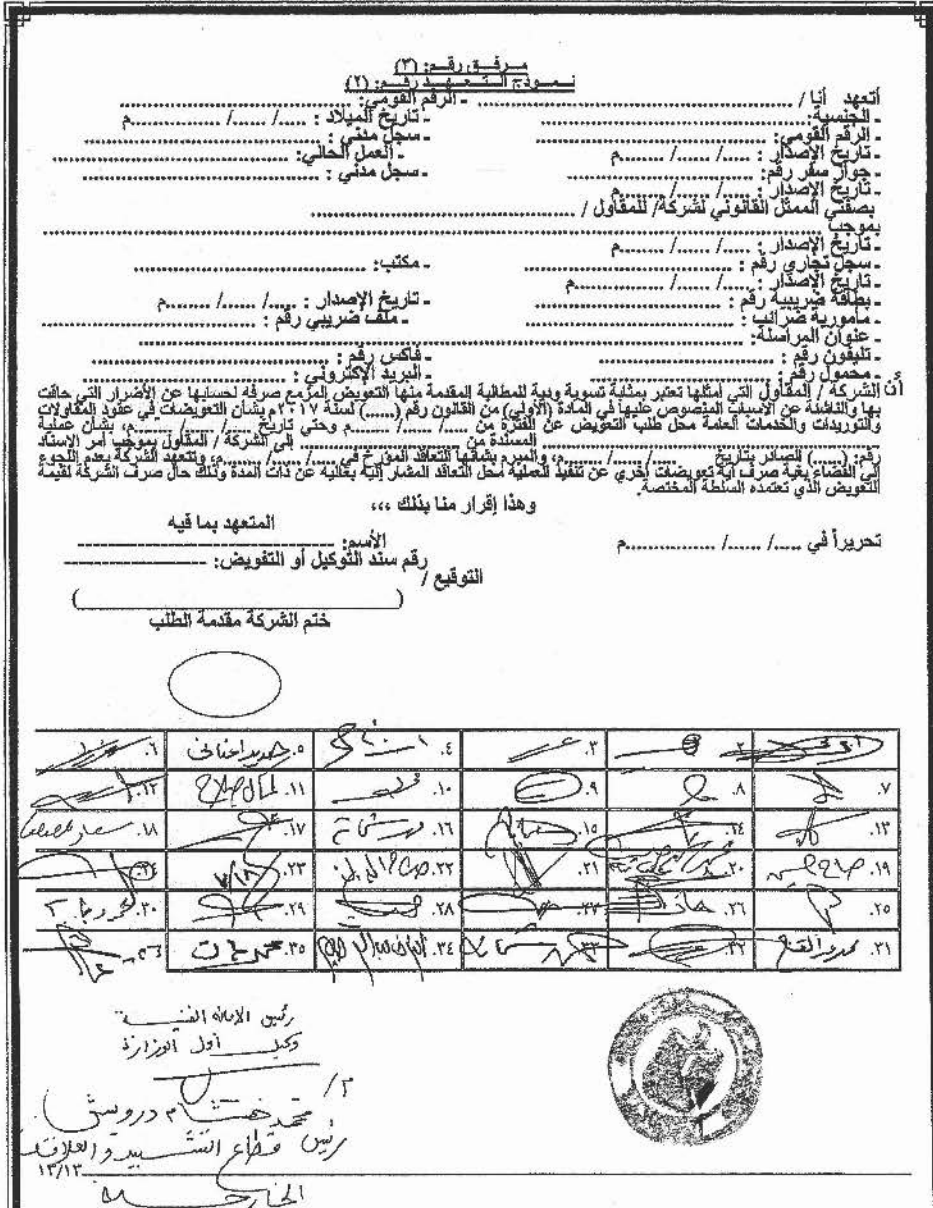 مرفق رقم: (٣)
نموذج التعهد رقم: (٢)
أتعهد أنا / ........................ - الرقم القومي: ........................
- الجنسية: ........................ - تاريخ الميلاد : ...../ ....../ ...............م
- الرقم القومي: ........................ - سجل مدني : ........................
- تاريخ الإصدار : ...../ ....../ ........م - العمل الحالي: ........................
- جواز سفر رقم: ........................ - سجل مدني : ........................
- تاريخ الإصدار : ...../ ....../ ........م
بصفتي الممثل القانوني لشركة/ للمقاول / ........................
بموجب ........................
- تاريخ الإصدار : ...../ ....../ ........م
- سجل تجاري رقم : ........................ - مكتب: ........................
- تاريخ الإصدار : ...../ ....../ ........م
- بطاقة ضريبية رقم : ........................ - تاريخ الإصدار : ...../ ....../ ........م
- مأمورية ضرائب : ........................ - ملف ضريبي رقم : ........................
- عنوان المراسلة: ........................
- تليفون رقم : ........................ - فاكس رقم : ........................
- محمول رقم : ........................ - البريد الإلكتروني : ........................
أن الشركة / المقاول التي امثلها تعتبر بمثابة تسوية ودية للمطالبة المقدمة منها التعويض المزمع صرفه لحسابها عن الأضرار التي حاقت
بها والناشئة عن الأسباب المنصوص عليها في المادة (الأولي) من القانون رقم (......) لسنة ٢٠١٧م بشأن التعويضات في عقود المقاولات
والتوريدات والخدمات العامة محل طلب التعويض عن الفترة من ...../ ....../ ........م وحتي تاريخ ...../ ....../ ........م، بشأن عملية
........................ المسندة من ........................ إلي الشركة / المقاول بموجب أمر الاسناد
رقم: (......) الصادر بتاريخ ...../ ....../ ........م، والمبرم بشأنها التعاقد المؤرخ في ...../ ....../ ........م، وتتعهد الشركة بعدم اللجوء
إلي القضاء بغية صرف أية تعويضات أخري عن تنفيذ العملية محل التعاقد المشار إليه بعاليه عن ذات المدة وذلك حال صرف الشركة لقيمة
التعويض الذي تعتمده السلطة المختصة.
وهذا إقرار منا بذلك ،،،
المتعهد بما فيه
تحريراً في ...../ ....../ ...............م الأسم: ------------------------
رقم سند التوكيل أو التفويض: ----------------
التوقيع /
( )
ختم الشركة مقدمة الطلب
٣. ٤. ٥. ٦.
٧. ٨. ٩. ١٠. ١١. ١٢.
١٣. ١٤. ١٥. ١٦. ١٧. ١٨.
١٩. ٢٠. ٢١. ٢٢. ٢٣. ٢٤.
٢٥. ٢٦. ٢٧. ٢٨. ٢٩. ٣٠.
٣١. ٣٢. ٣٣. ٣٤. ٣٥.
رئيس الامانه الفنية
وكيل أول الوزارة
م/
محمد هشام درويش
رئيس قطاع التشييد و العلاقات
١٣/١٣
الخارجية